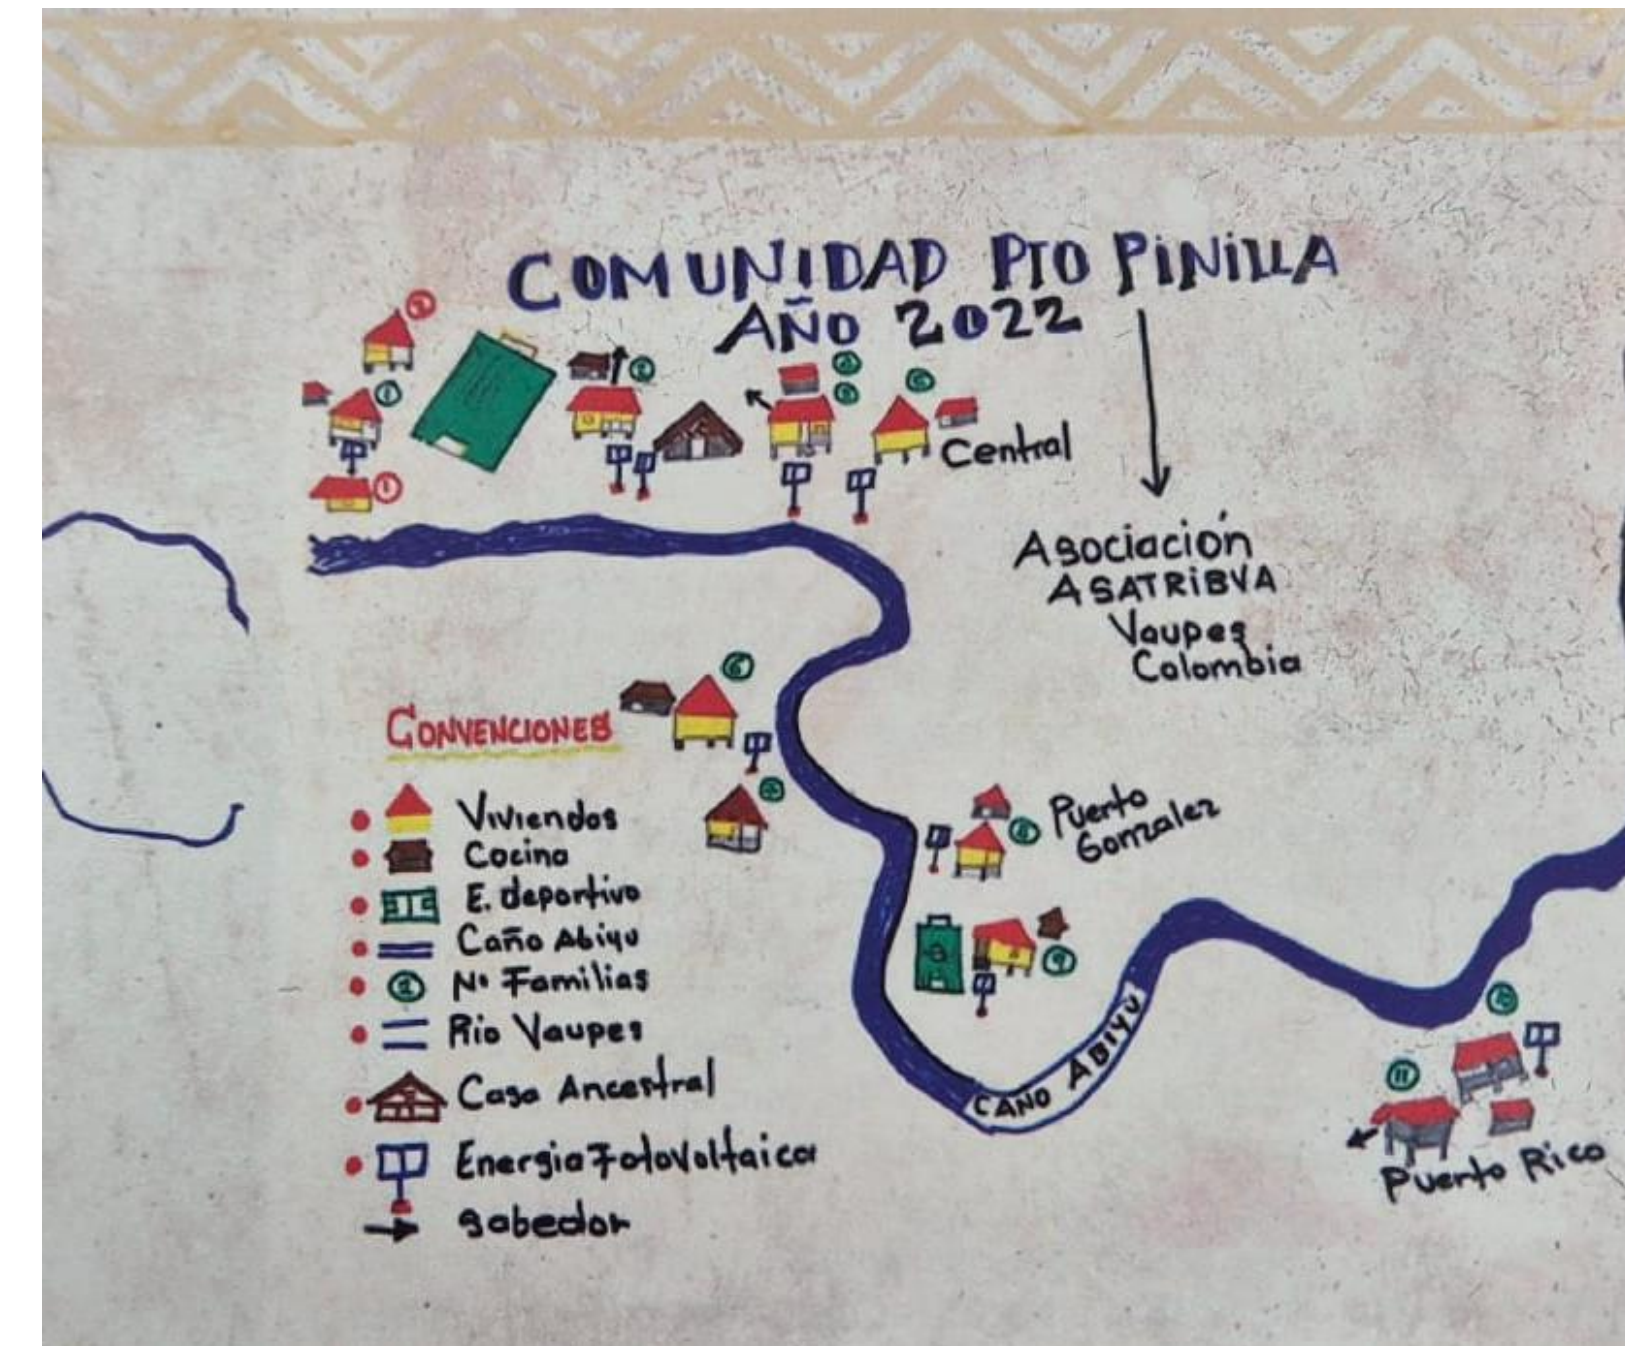 COMUNIDAD PTO PINILLA
AÑO 2022
2
1
1
2
Central
Asociación
ASATRIBVA
Vaupes
Colombia
6
CONVENCIONES
Viviendas
Cocina
E. deportivo
Caño Abiyu
Nº Familias
Rio Vaupes
Casa Ancestral
Energia Fotovoltaica
Sabedor
8
Puerto
Gonzalez
9
CAÑO ABIYU
10
11
Puerto Rico